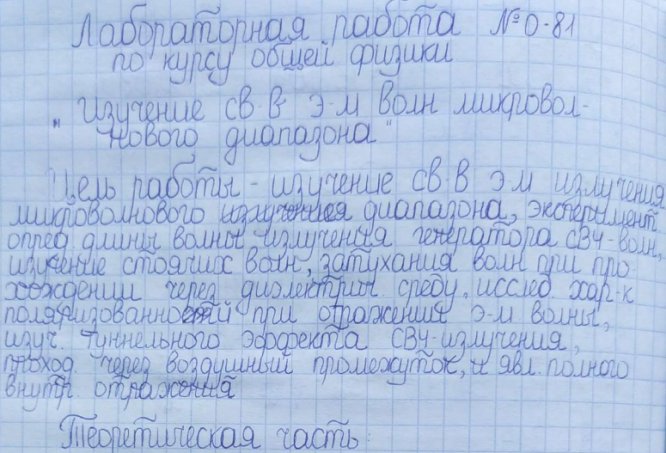 Лабораторная работа № О-81
по курсу общей физики
"Изучение св-в э-м волн микровол-
нового диапазона"
Цель работы - изучение св-в э-м излучения
микроволнового излучения диапазона, эксперимент.
опред. длины волны излучения генератора СВЧ-волн,
изучение стоячих волн, затухания волн при про-
хождении через диэлектрич. среду, исслед. хар-к
поляризованностей при отражении э-м волны,
изуч. туннельного эффекта СВЧ-излучения,
проход. через воздушный промежуток, и явл. полного
внутр. отражения
Теоретическая часть: